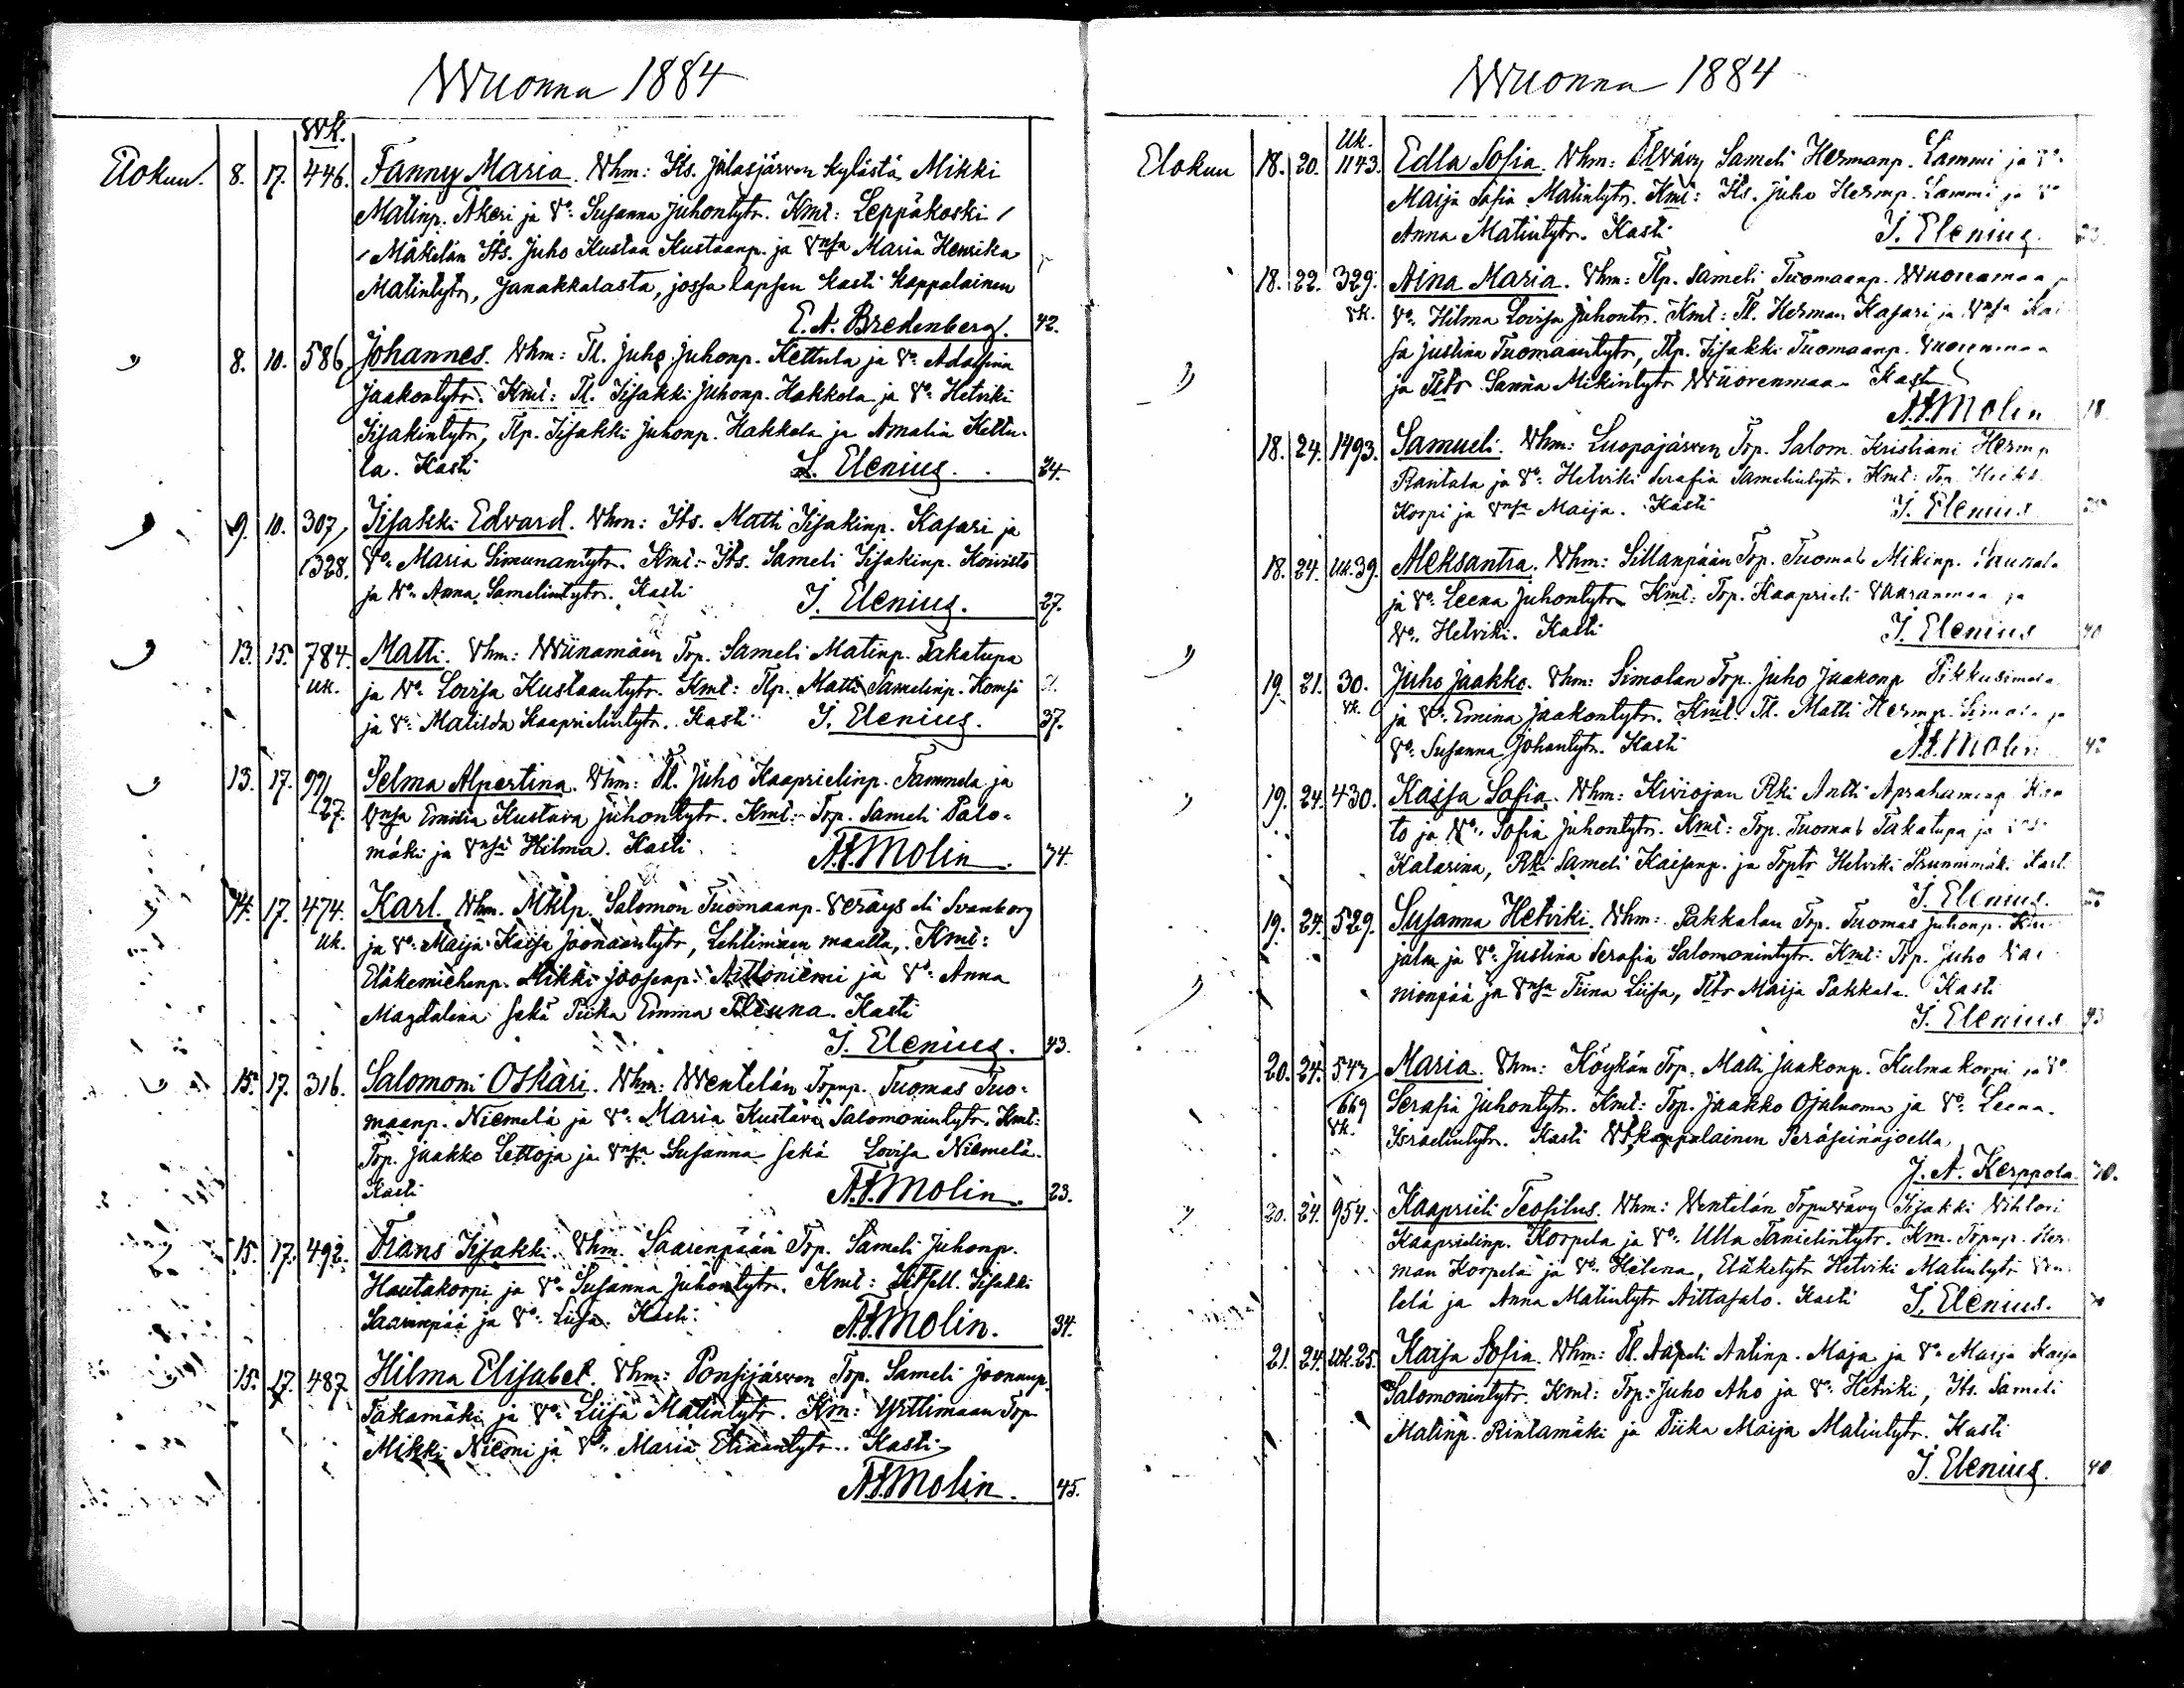 Wuonna 1884
Wk.
Elokuu. 8. 17. 446. Fanny Maria. Vhm: Its. Jalasjärven kylästä Mikki
Matinp. Äkeri ja Vo: Susanna Juhontytr. Kmt: Leppäkoski
Mäkelän Its. Juho Kustaa Kustaanp. ja Vnsa Maria Henrika
Matintytr, Janakkalasta, jossa lapsen kasti Kappalainen
E. A. Bredenberg. 42.
" 8. 10. 586 Johannes. Vhm: Tl. Juho Juhonp. Kettula ja Vo. Adolfina
Jaakontytr. Kmt: Tl. Iisakki Juhonp. Hakkola ja Vo: Hetviki
Iisakintytr, Tlp. Iisakki Juhonp. Hakkola ja Amalia Kettu-
la. Kasti J. Elenius. 24.
" 9. 10. 307/ Iisakki Edvard. Vhm: Its. Matti Iisakinp. Kasari ja
328. Vo: Maria Simunantytr. Kmt: Its. Sameli Iisakinp. Koivisto
ja Vo: Anna Samelintytr. Kasti J. Elenius. 27.
" 13. 15. 784. Matti. Vhm: Wiinamäen Trp. Sameli Matinp. Takatupa
Uk. ja Vo: Lovisa Kustaantytr. Kmt: Tlp. Matti Samelinp. Komsi
ja Vo: Matilda Kaaprielintytr. Kasti J. Elenius. 37.
" 13. 17. 99/ Selma Alpertina. Vhm: Tl. Juho Kaaprielinp. Tammela ja
127. Vnsa Emilia Kustava Juhontytr. Kmt: Trp. Sameli Palo-
mäki ja Vnsa Hilma. Kasti A. F. Molin. 34.
" 14. 17. 474. Karl. Vhm. Mklp. Salomon Tuomaanp. Veräys eli Svanborg
Uk. ja Vo: Maija Kaisa Joonaantytr, Lehtimäen maalta. Kmt:
Eläkemiehenp. Mikki Joosenp. Aittoniemi ja Vo: Anna
Magdalina sekä Piika Emina Kasti
J. Elenius. 43.
" 15. 17. 316. Salomoni Oskari. Vhm: Wentelän Trpnp. Tuomas Tuo-
maanp. Niemelä ja Vo: Maria Kustava Salomonintytr. Kmt:
Trp. Jaakko Lettoja ja Vnsa Susanna sekä Lovisa Niemelä.
Kasti A. F. Molin. 23.
15. 17. 492. Frans Iisakki. Vhm. Saarenpään Trp. Sameli Juhonp.
Hautakorpi ja Vo: Susanna Juhontytr. Kmt: Itsell. Iisakki
Saarenpää ja Vo: Liisa. Kasti. A. F. Molin. 34.
15. 17. 487 Hilma Elisabet. Vhm: Ponsijärven Trp. Sameli Joonanp.
Takamäki ja Vo: Liisa Matintytr. Km: Yrttimaan Trp
Mikki Niemi ja Vo: Maria Eliaantytr. Kasti
A. F. Molin. 45.
Wuonna 1884
Uk.
Elokuu 18. 20. 1143. Edla Sofia. Vhm: Tlvävy Sameli Hermanp. Lammi ja Vo.
Maija Sofia Matintytr. Kmt: Its. Juho Hermp. Lammi ja Vo
Anna Matintytr. Kasti J. Elenius. 23.
18. 22. 329. Aina Maria. Vhm: Tlp. Sameli Tuomaanp. Wuorenmaa
Vk. Vo: Hilma Lovisa Juhontr. Kmt: Tl. Herman Kasari ja Vnsa Kai
sa Justina Tuomaantytr, Tlp. Iisakki Tuomaanp. Vuorenmaa
" ja Tltr Sanna Mikintytr Wuorenmaa. Kasti
A. F. Molin 18
18. 24. 1493. Samueli. Vhm: Luopajärven Trp. Salom. Kristiani Hermp
Rantala ja Vo: Hetviki Serafia Samelintytr. Kmt: Trp. Heikki
Korpi ja Vnsa Maija. Kasti J. Elenius
18. 24. Uk. 39. Aleksantra. Vhm: Sillanpään Trp. Tuomas Mikinp.
ja Vo: Leena Juhontytr. Kmt: Trp. Kaaprieli Vaaranmaa ja
Vo: Hetviki. Kasti J. Elenius 40
" 19. 21. 30. Juho Jaakko. Vhm: Simolan Trp. Juho Jaakonp Pikkusimola
Vk. ja Vo: Emina Jaakontytr. Kmt. Tl. Matti Hermp. Simola ja
Vo: Susanna Johantytr. Kasti A. F. Molin 42
" 19. 24. 430. Kaisa Sofia. Vhm: Kiviojan Rki Antti Aprahaminp.
to ja Vo: Sofia Juhontytr. Kmt: Trp. Tuomas Takatupa ja
Katarina, Rki Sameli Kaisanp. ja Trptr Hetviki Prunnimäki. Kasti
J. Elenius.
19. 24. 529. Susanna Hetviki. Vhm: Pakkalan Trp. Tuomas Juhonp.
jalan ja Vo: Justina Serafia Salomonintytr. Kmt: Trp. Juho Vai
nionpää ja Vnsa Tiina Liisa, Tltr Maija Pakkala. Kasti
J. Elenius 43
20. 24. 547/ Maria. Vhm: Köykän Trp. Matti Jaakonp. Kulmakorpi ja Vo
669 Serafia Juhontytr. Kmt: Trp. Jaakko Ojaluoma ja Vo: Leena
Vk. Israelintytr. Kasti Vt. kappalainen Peräseinäjoella
J. A. Kerppola. 30.
20. 24. 954. Kaaprieli Teofilus. Vhm: Ventelän Trpnvävy Iisakki Vihtori
Kaaprielinp. Korpela ja Vo: Ulla Tanielintytr. Km. Trpnp. Her-
man Korpela ja Vo: Helena, Eläketytr Hetviki Matintytr Ven
telä ja Anna Matintytr Aittasalo. Kasti J. Elenius.
21. 24. Uk. 25. Kaisa Sofia. Vhm: Tl. Aapeli Antinp. Maja ja Vo: Maija Kaisa
Salomonintytr. Kmt: Trp. Juho Aho ja Vo: Hetviki, Its. Sameli
Matinp. Rintamäki ja Piika Maija Matintytr. Kasti
J. Elenius. 40